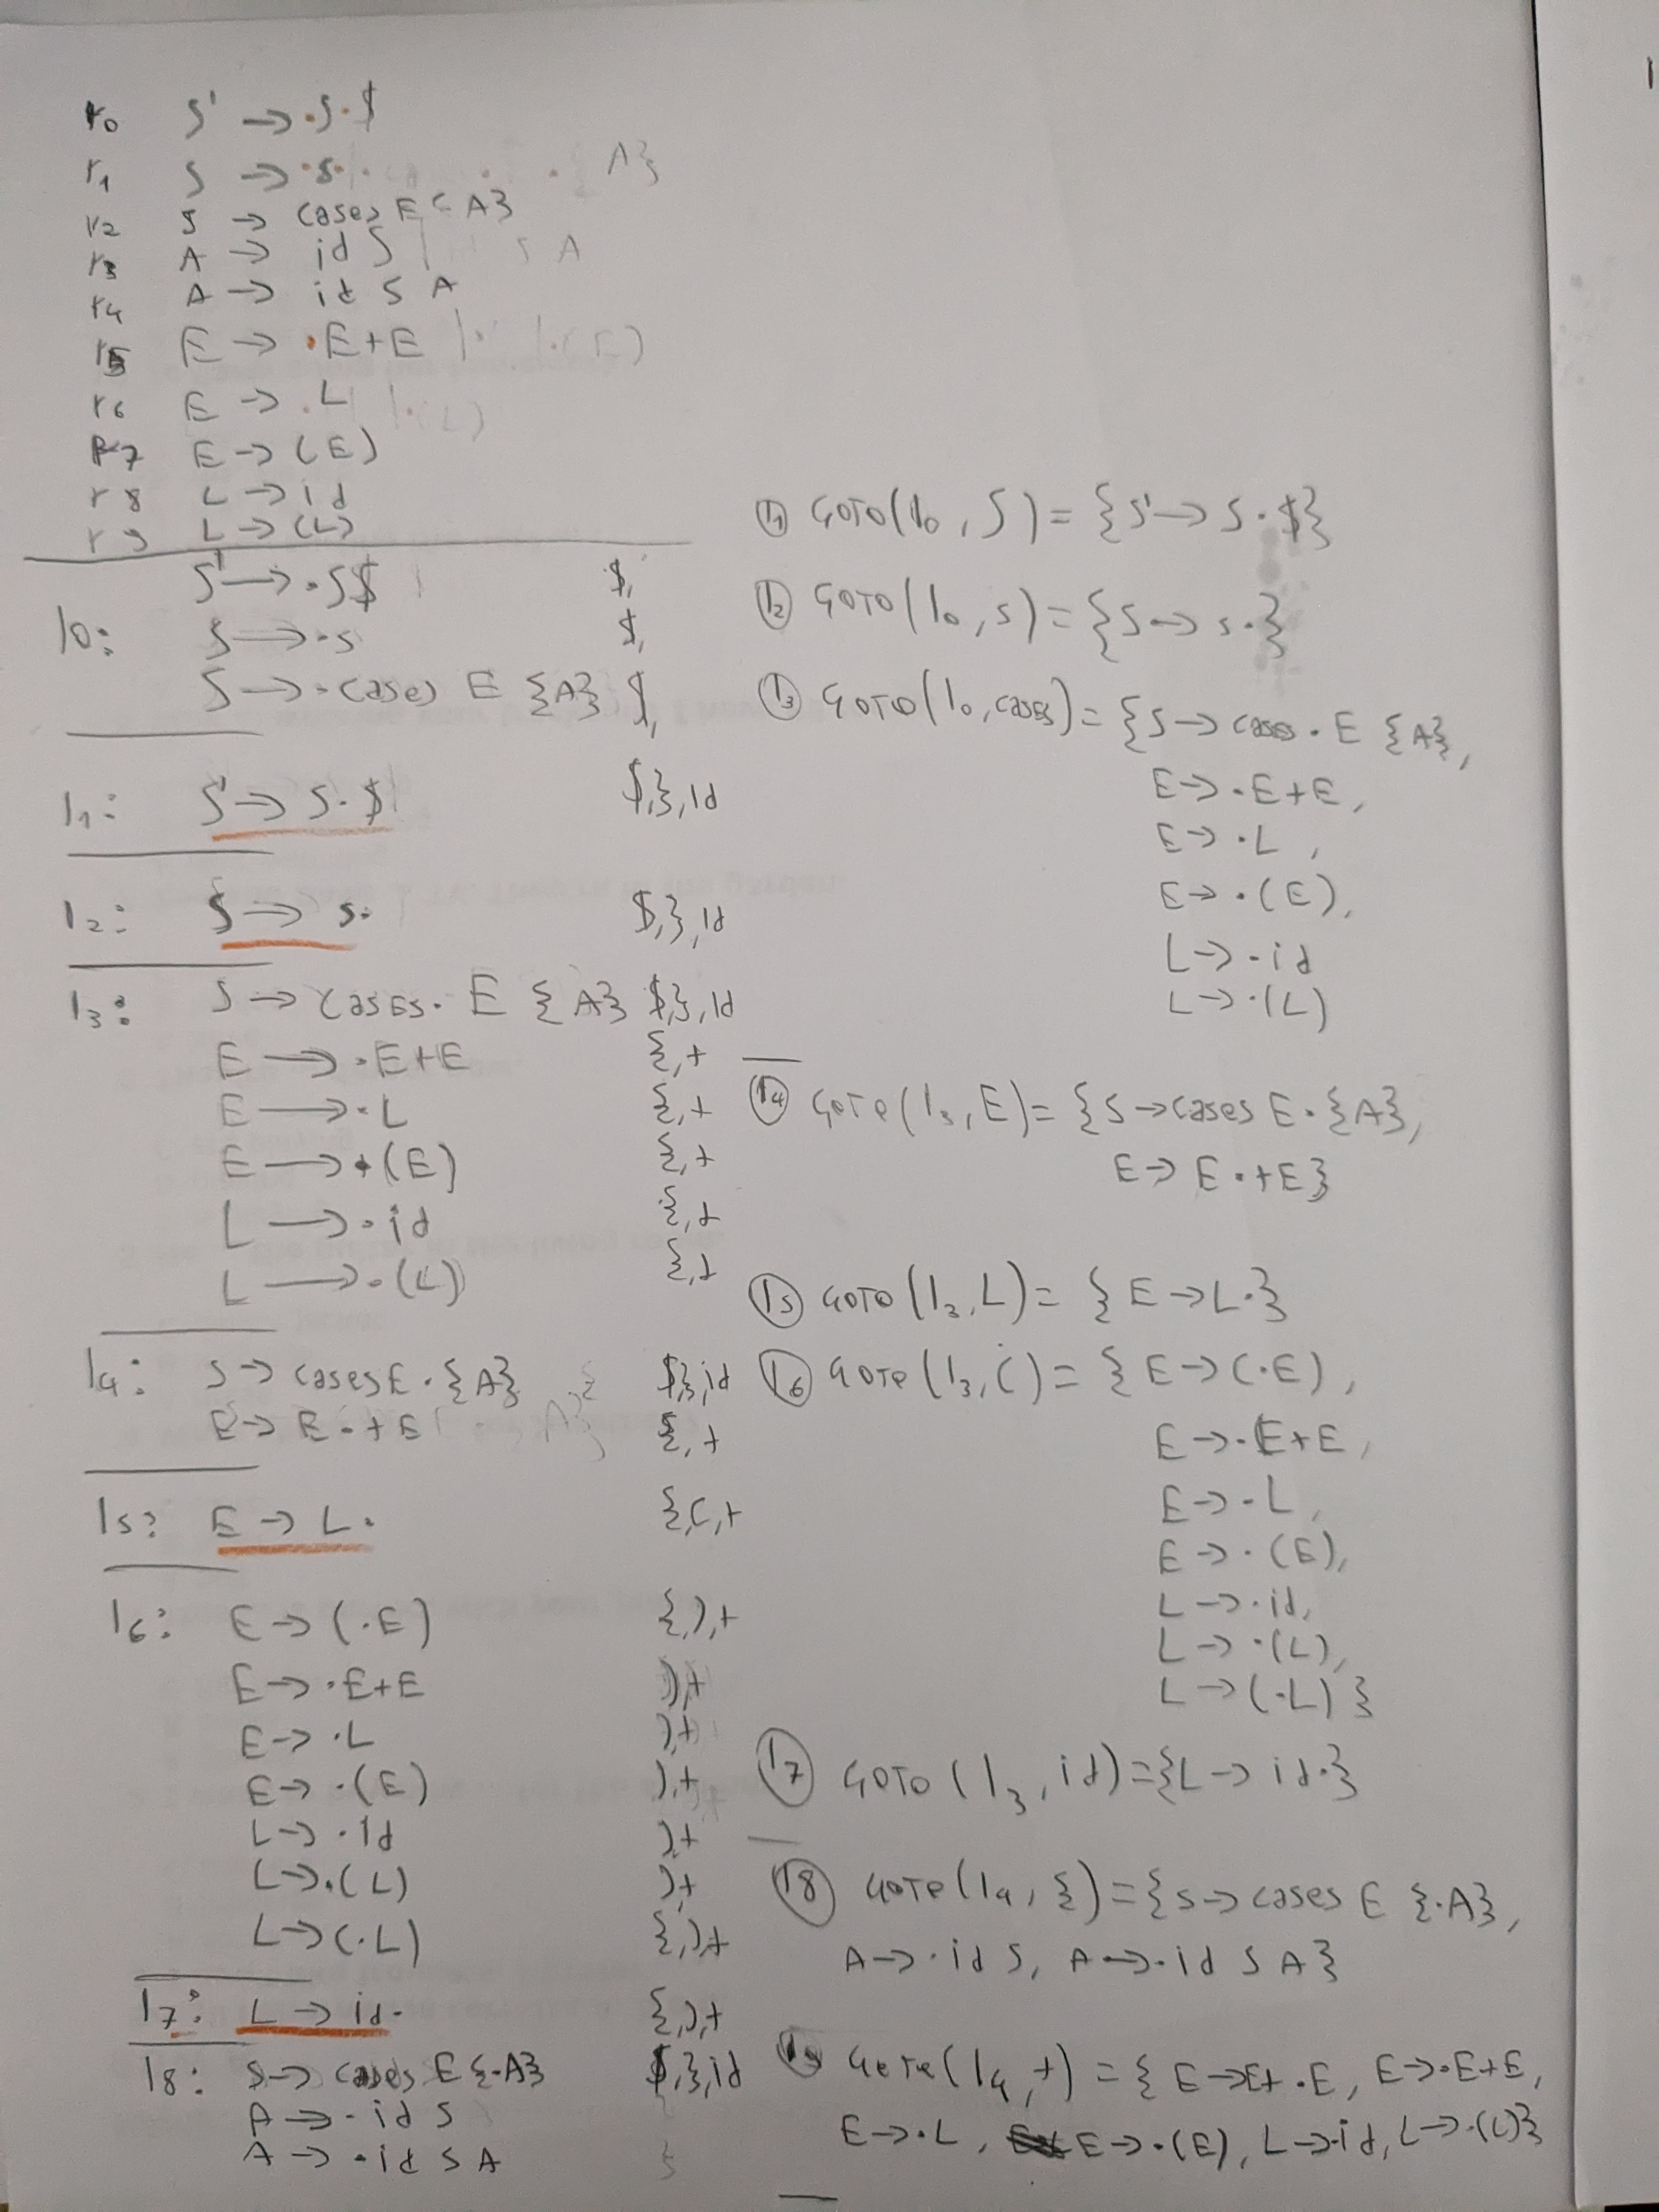 r0 S' → ·S·$
r1 S → ·s·
A}
r2 S → cases E { A}
r3 A → id S
S A
r4 A → id S A
r5 E → ·E+E |· |·(E)
r6 E → .L
|·(L)
r7 E → (E)
r8 L → id
r9 L → (L)
S' → ·S$ $,
I0: S → ·s $,
S → ·cases E {A} $,
I1: S' → S·$ $,},id
I2: S → s· $,},id
I3: S → cases· E {A} $,},id
E → ·E+E {,+
E → ·L {,+
E → ·(E) {,+
L → ·id {,+
L → ·(L) {,+
I4: S → cases E·{A} $,},id
E → E·+E {,+
I5: E → L· {,(,+
I6: E → (·E) {,),+
E → ·E+E ),+
E → ·L ),+
E → ·(E) ),+
L → ·id ),+
L → ·(L) ),+
L → (·L) {,),+
I7: L → id· {,),+
I8: S → cases E {·A} $,},id
A → ·id S
A → ·id S A }
I1 GOTO(I0, S) = {S' → S·$}
I2 GOTO(I0, s) = {S → s·}
I3 GOTO(I0, cases) = {S → cases·E {A},
E → ·E+E,
E → ·L,
E → ·(E),
L → ·id
L → ·(L)
I4 GOTO(I3, E) = {S → cases E·{A},
E → E·+E}
I5 GOTO(I3, L) = {E → L·}
I6 GOTO(I3, () = {E → (·E),
E → ·E+E,
E → ·L,
E → ·(E),
L → ·id,
L → ·(L),
L → (·L)}
I7 GOTO(I3, id) = {L → id·}
I8 GOTO(I4, {) = {S → cases E {·A},
A → ·id S, A → ·id S A}
I9 GOTO(I4, +) = {E → E+·E, E → ·E+E,
E → ·L, E → ·(E), L → ·id, L → ·(L)}